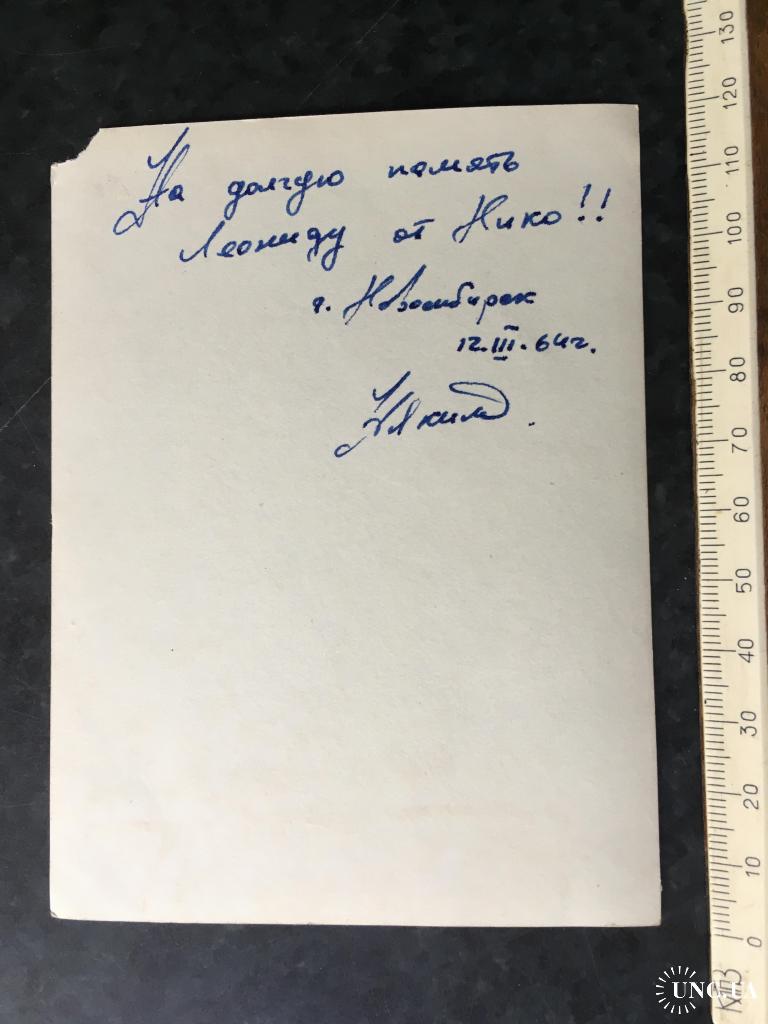 На долгую память
Леониду от Нико!!
г. Новосибирск
12.III.64г.
130
120
110
100
90
80
70
60
50
40
30
20
10
0
КПЗ
UNC.UA